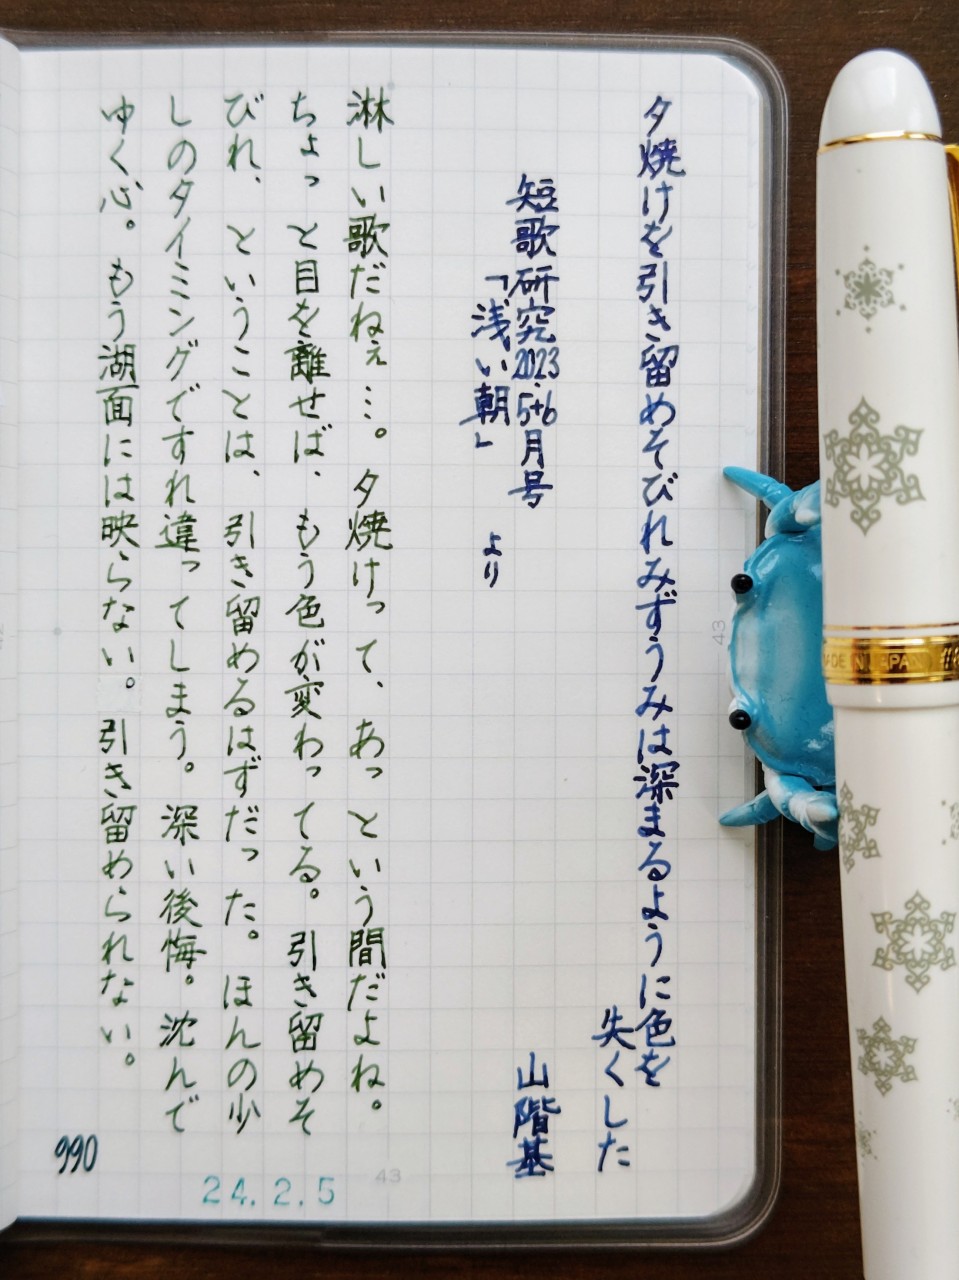 夕焼けを引き留めそびれみずうみは深まるように色を
失くした
短歌研究2023.5+6月号
「浅い朝」
より
山階基
淋しい歌だねぇ…。夕焼けって、あっという間だよね。
ちょっと目を離せば、もう色が変わってる。引き留めそ
びれ、ということは、引き留めるはずだった。ほんの少
しのタイミングですれ違ってしまう。深い後悔。沈んで
ゆく心。もう湖面には映らない。引き留められない。
990
24.2.5
43
43
MADE IN JAPAN